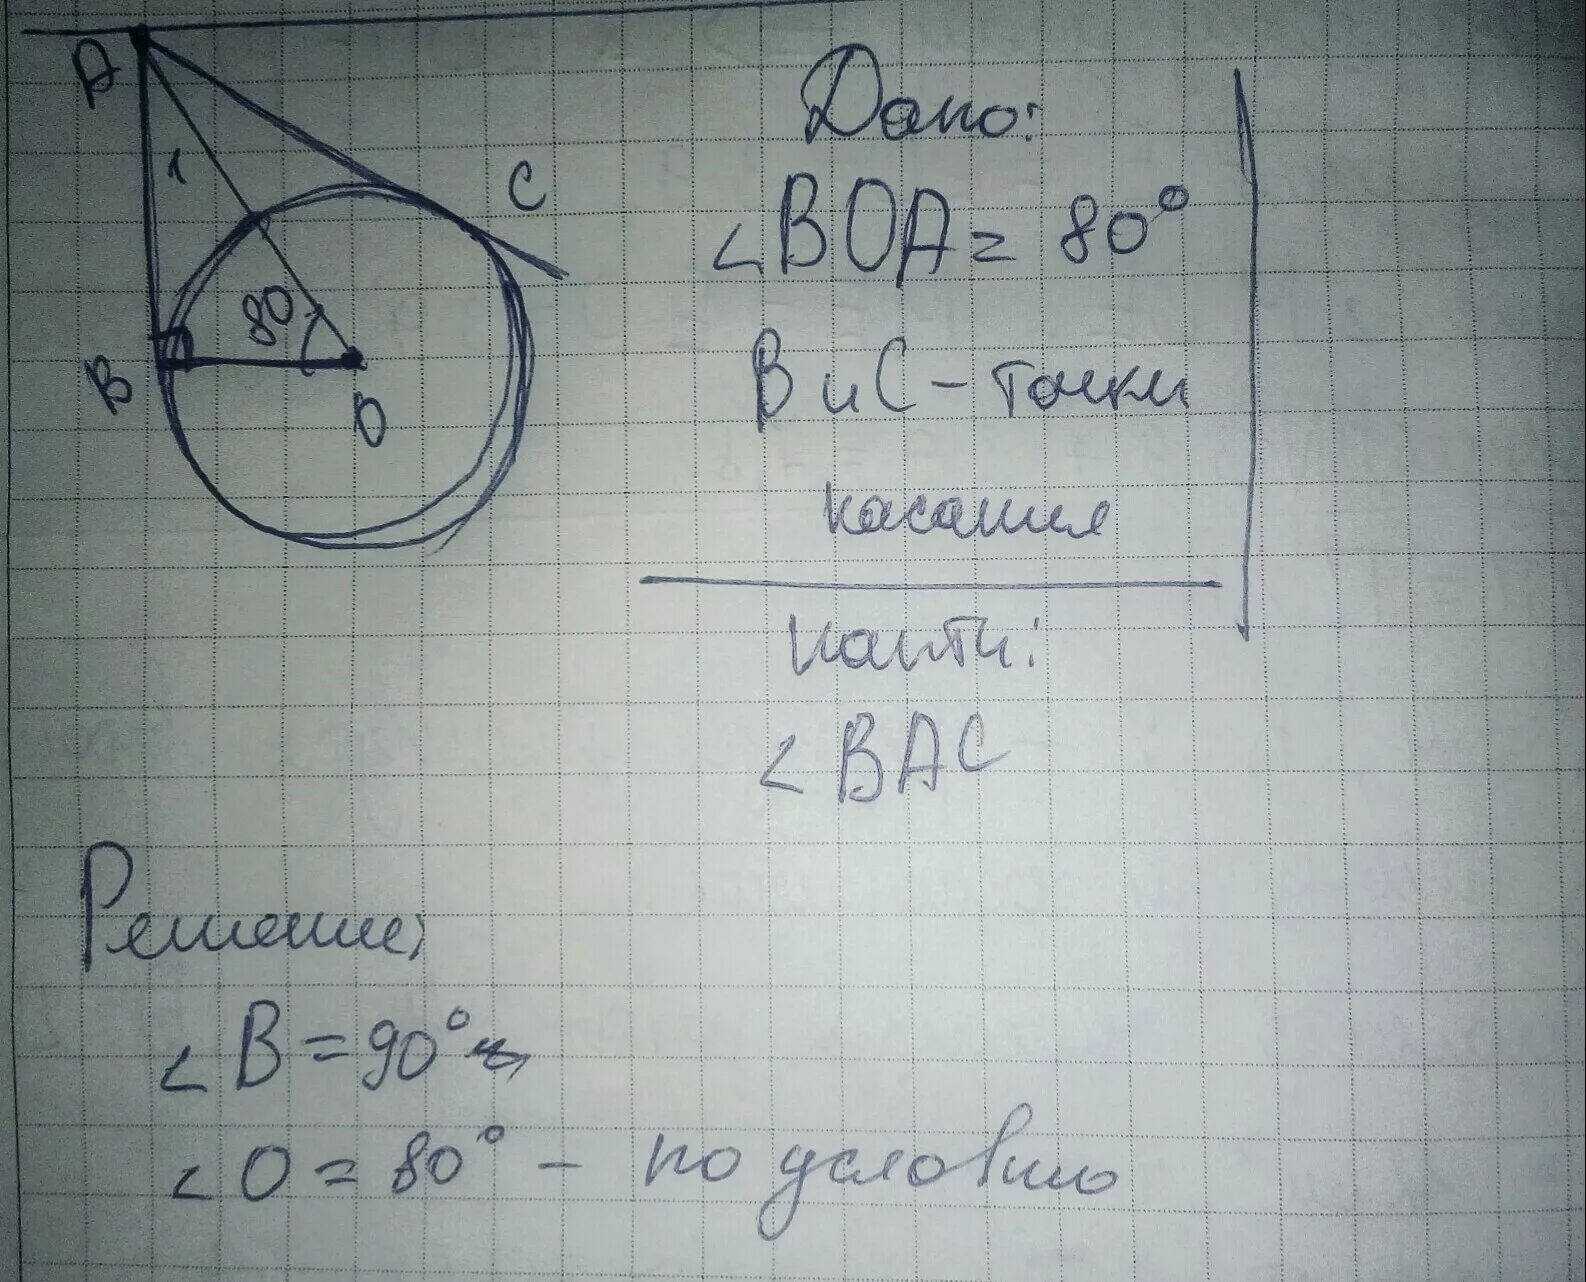 A
1
C
80
B
O
Дано:
∠BOA = 80°
B и C – точки
касания
Найти:
∠BAC
Решение:
∠B = 90°
∠O = 80° – по условию